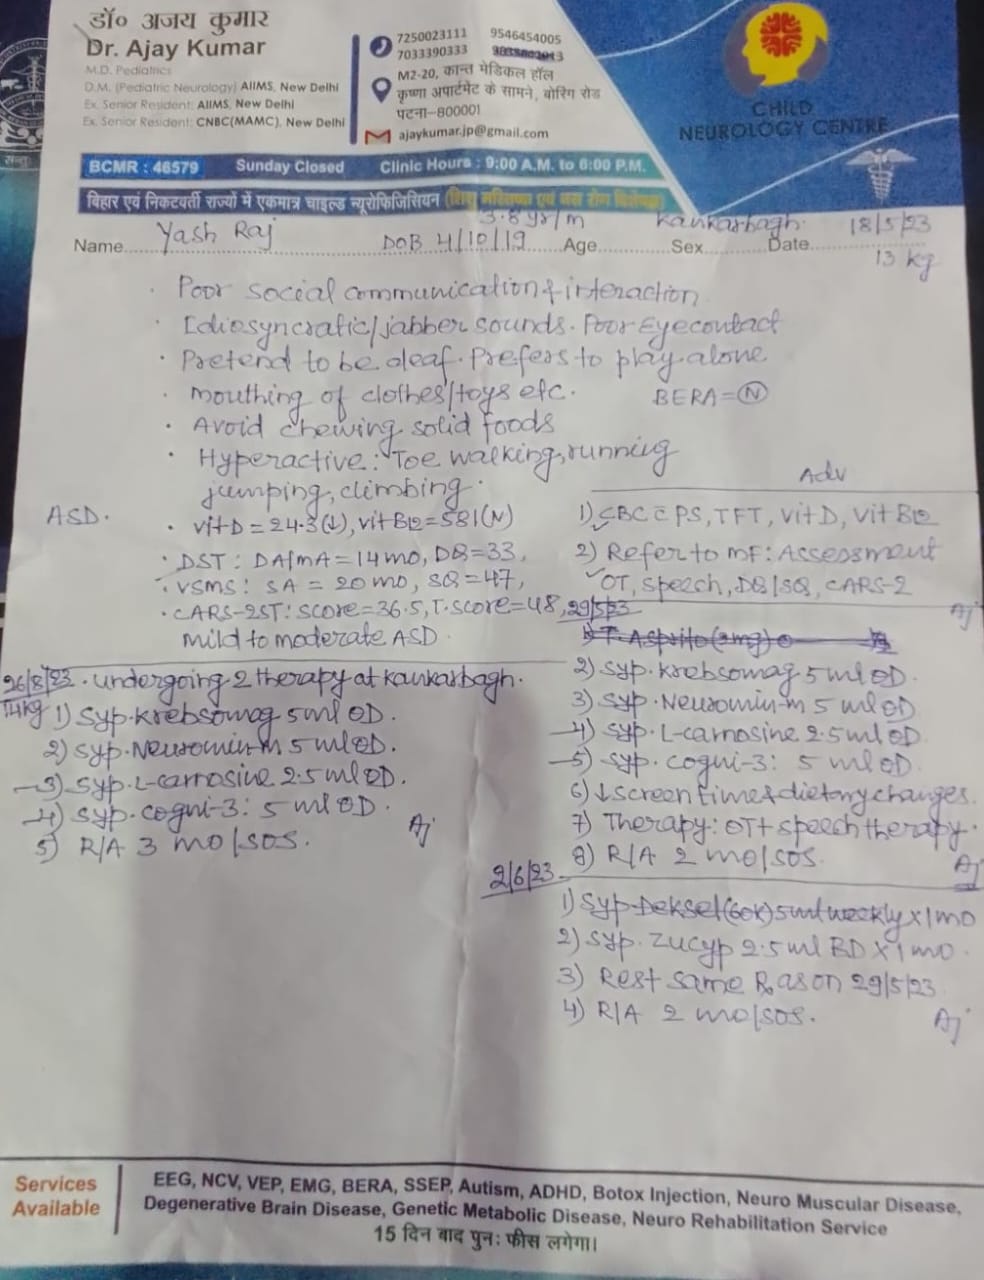 डॉ० अजय कुमार
Dr. Ajay Kumar
M.D. Pediatrics
D.M. (Pediatric Neurology) AIIMS, New Delhi
Ex. Senior Resident: AIIMS, New Delhi
Ex. Senior Resident: CNBC(MAMC), New Delhi
7250023111 9546454005
7033390333
M2-20, कान्त मेडिकल हॉल
कृष्णा अपार्टमेंट के सामने, बोरिंग रोड
पटना-800001
ajaykumar.jp@gmail.com
CHILD
NEUROLOGY CENTRE
BCMR : 46579 Sunday Closed Clinic Hours : 9:00 A.M. to 6:00 P.M.
बिहार एवं निकटवर्ती राज्यों में एकमात्र चाइल्ड न्यूरोफिजिसियन (शिशु मस्तिष्क एवं नस रोग विशेषज्ञ)
Name Yash Raj DOB 4/10/19 Age 3.8 yr/m Sex Kankarbagh Date 18/5/23
13 kg
· Poor social communication & interaction
· Idiosyncratic/jabber sounds. Poor Eyecontact
· Pretend to be deaf. Prefers to play alone
· Mouthing of clothes/toys etc. BERA = N
· Avoid chewing solid foods
· Hyperactive: Toe walking, running
jumping, climbing.
ASD.
· Vit D = 24.3(↓), Vit B12 = 581(N)
· DST : DA/MA = 14 mo, DQ = 33,
· VSMS : SA = 20 mo, SQ = 47,
· CARS-2ST: Score = 36.5, T.Score = 48,
mild to moderate ASD.
Adv
1) CBC c̄ PS, TFT, Vit D, Vit B12
2) Refer to MF: Assessment
OT, Speech, DQ/SQ, CARS-2
Aj
29/5/23
1) T. Asprito (2mg) 0
2) Syp. Krebsomag 5 ml OD.
3) Syp. Neuromin-M 5 ml OD
4) Syp. L-carnosine 2.5 ml OD.
5) Syp. Cogni-3: 5 ml OD.
6) ↓ Screen time & dietary changes.
7) Therapy: OT + speech therapy.
8) R/A 2 mo/SOS.
Aj
2/6/23
1) Syp Deksel (60K) 5ml weekly x 1 mo
2) Syp. Zucyp 2.5 ml BD x 1 mo.
3) Rest same Rx as on 29/5/23
4) R/A 2 mo/SOS.
Aj
26/8/23 · Undergoing 2 therapy at Kankarbagh.
14 kg
1) Syp. Krebsomag 5 ml OD.
2) Syp. Neuromin-M 5 ml OD.
3) Syp. L-carnosine 2.5 ml OD.
4) Syp. Cogni-3: 5 ml OD.
5) R/A 3 mo/SOS.
Aj
Services
Available
EEG, NCV, VEP, EMG, BERA, SSEP, Autism, ADHD, Botox Injection, Neuro Muscular Disease,
Degenerative Brain Disease, Genetic Metabolic Disease, Neuro Rehabilitation Service
15 दिन बाद पुनः फीस लगेगा।